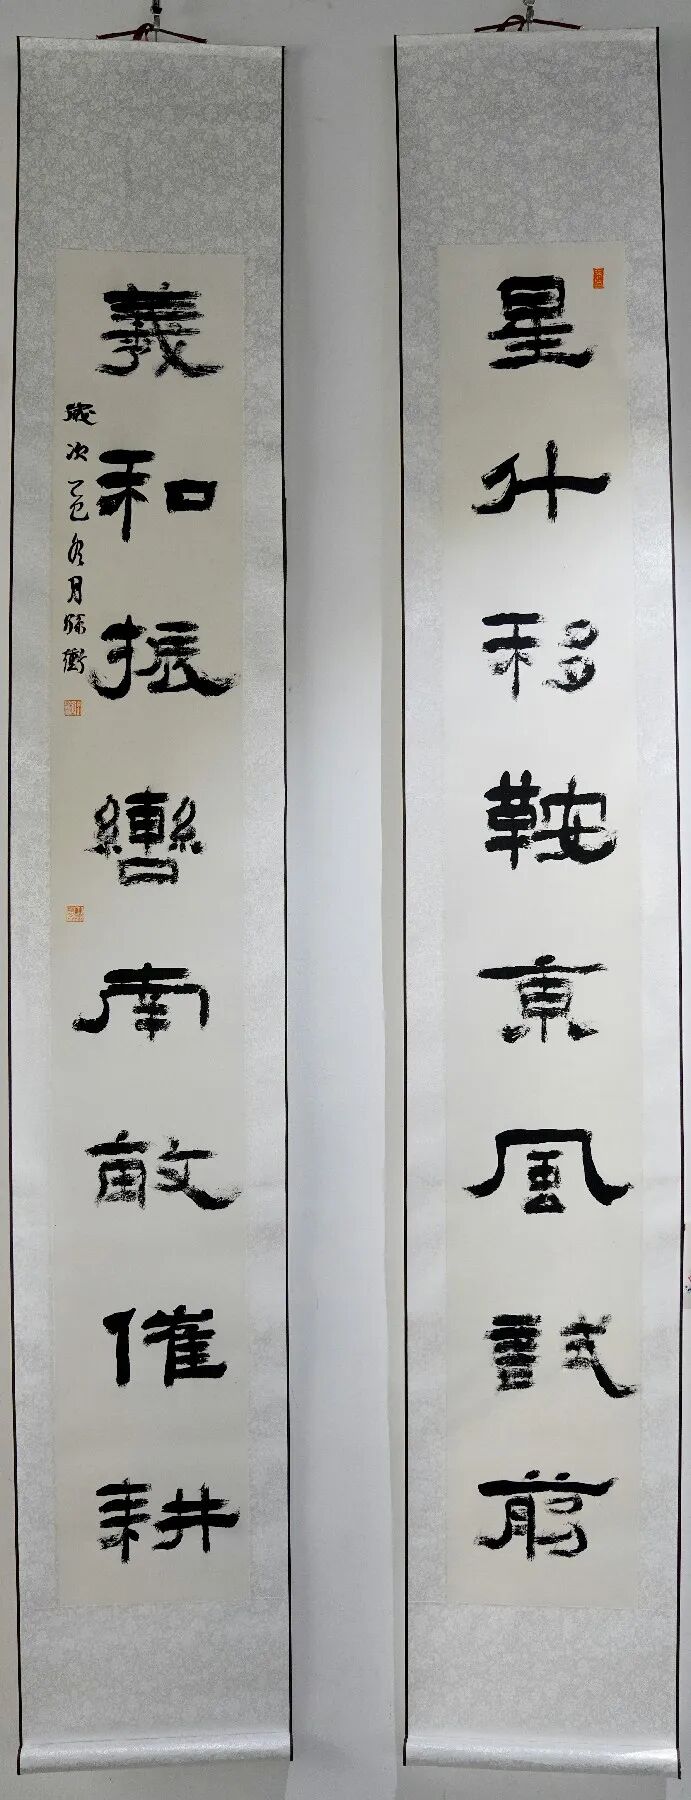 星斗移鞍東風試剪
羲和振轡南畝催耕
歲次乙巳冬月